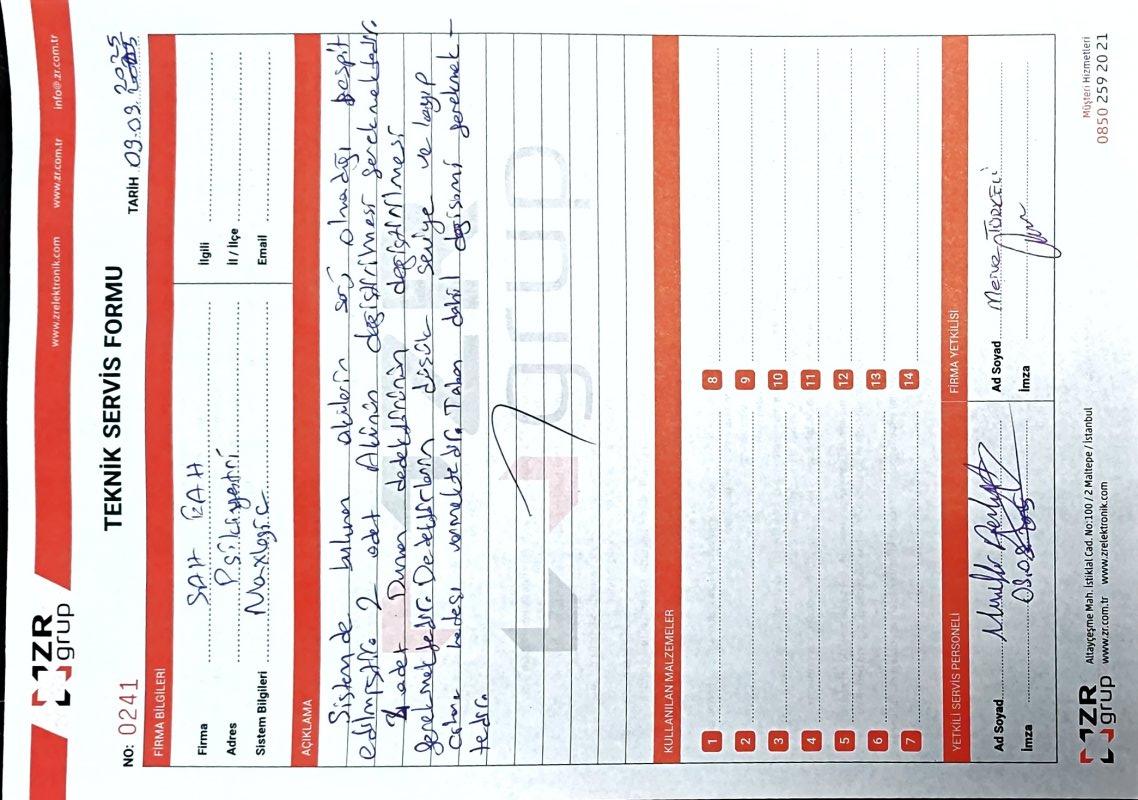 ZR grup
www.zrelektronik.com www.zr.com.tr info@.zr.com.tr
TEKNİK SERVİS FORMU
NO: 0241
TARİH 09.03.2025
FİRMA BİLGİLERİ
Firma SAH EAH
İlgili
Adres Psikiyatri
İl / İlçe
Sistem Bilgileri Maxlogic
Email
AÇIKLAMA
Sistemde bulunan akülerin şarj olmadığı tespit
edilmiştir. 2 adet Akünün değiştirilmesi gerekmektedir.
adet Duman dedektörünün değiştirilmesi
gerekmektedir. Dedektörlerin düşük seviye ve kayıp
Cihaz hatası vermektedir. Taban dahil değişimi gerekmek-
tedir.
ZR grup
KULLANILAN MALZEMELER
1 8
2 9
3 10
4 11
5 12
6 13
7 14
YETKİLİ SERVİS PERSONELİ
FİRMA YETKİLİSİ
Ad Soyad
Ad Soyad Merve TÜRKELİ
İmza
İmza
ZR grup
Altayçeşme Mah. İstiklal Cad. No:100 / 2 Maltepe / İstanbul
www.zr.com.tr www.zrelektronik.com
Müşteri Hizmetleri
0850 259 20 21